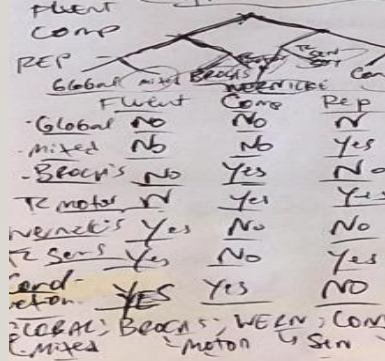 Fluent
Comp
REP
Global mixed Broca's WERNICKE Con
Fluent Comp Rep
-Global NO NO N
-mixed No No Yes
-Broca's No Yes No
TC motor N Yes Yes
Wernick's Yes No No
TC Sens Yes No Yes
Cond-
uction YES Yes NO
GLOBAL; BROCA'S; WERN; CON
-Mixed -Moton ↳ Sen